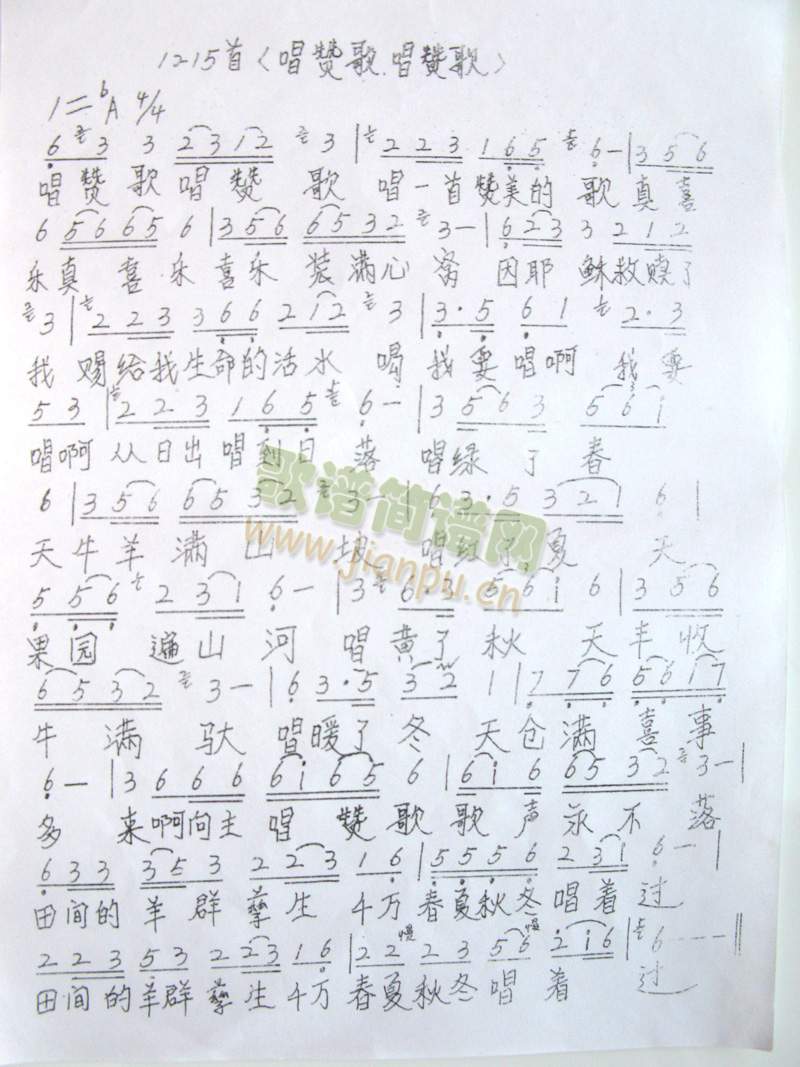 1215首〈唱赞歌.唱赞歌〉
1=♭A 4/4
6 3 3 2312 3 | 2 23 1 65 6- | 3 56
唱赞歌唱赞歌唱一首赞美的歌真喜
6 5665 6 | 3 56 6532 3- | 6 23 3 212
乐真喜乐喜乐装满心窝因耶稣救赎了
3 | 2 23 3 66 2 12 3 | 3·5 6 1 2·3
我赐给我生命的活水喝我要唱啊我要
5 3 | 2 23 1 65 6- | 3 56 3 56i
唱啊从日出唱到日落唱绿了春
6 | 3 56 6532 3- | 6 3·5 3 21 6 |
天牛羊满山坡唱红了夏天
5 56 2 31 6- | 3 6·3 56i 6 | 3 56
果园遍山河唱黄了秋天丰收
6532 3- | 6 3·5 32 1 | 7 76 5617
牛满驮唱暖了冬天仓满喜事
6- | 36 66 6i65 6 | 6i6 6532 3- |
多来啊向主唱赞歌歌声永不落
6 33 353 2 23 16 | 5556 231 6- |
田间的羊群孳生千万春夏秋冬唱着过
2 23 53 2 23 16 | 22慢 23 56慢 2i6 | 6 - - - ‖
田间的羊群孳生千万春夏秋冬唱着过
歌谱简谱网
www.jianpu.cn